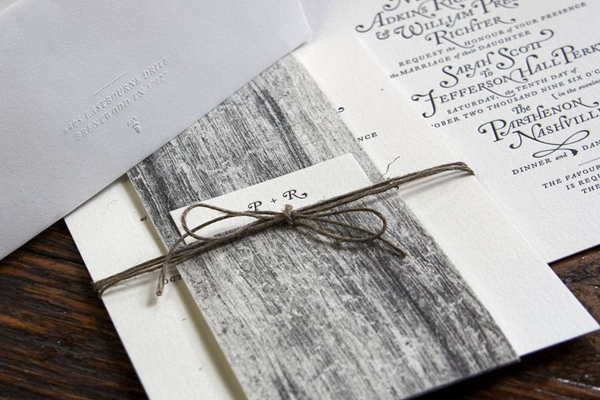 ADKINS
& WILLIAM
RICHTER
REQUEST the HONOUR of YOUR PRESENCE
the MARRIAGE of their DAUGHTER
SARAH SCOTT
To
JEFFERSON HALL PERK
SATURDAY, the TENTH DAY of
OBER TWO THOUSAND NINE SIX O'
in the evening
The
PARTHENON
NASHVILL
DINNER and DAN
THE FAVOU
IS REQU
THE
P + R
EASTBOURNE DRIVE
BRENTWOOD TN 37027